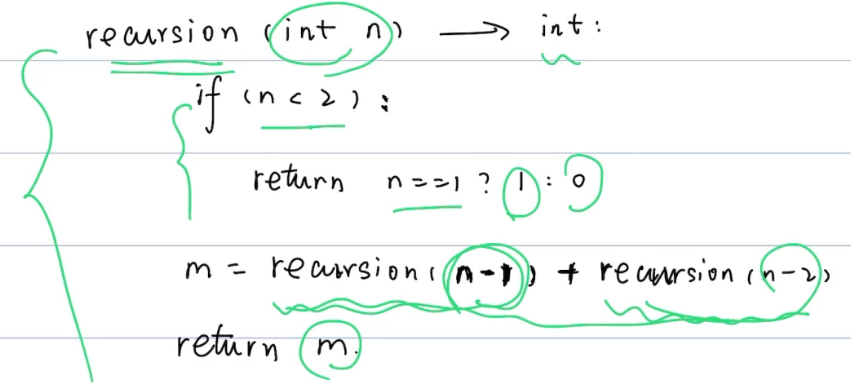 recursion (int n) → int:
if (n < 2):
return n==1 ? 1 : 0
m = recursion(n-1) + recursion(n-2)
return m.